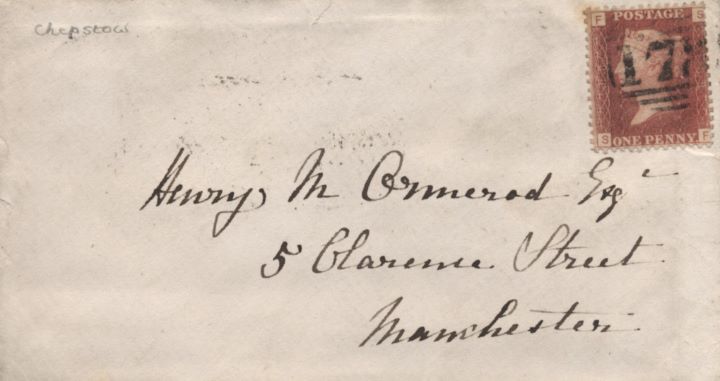 Chepstow
F POSTAGE S
178
S ONE PENNY F
Henry M Ormerod Esqr
5 Clarence Street
Manchester